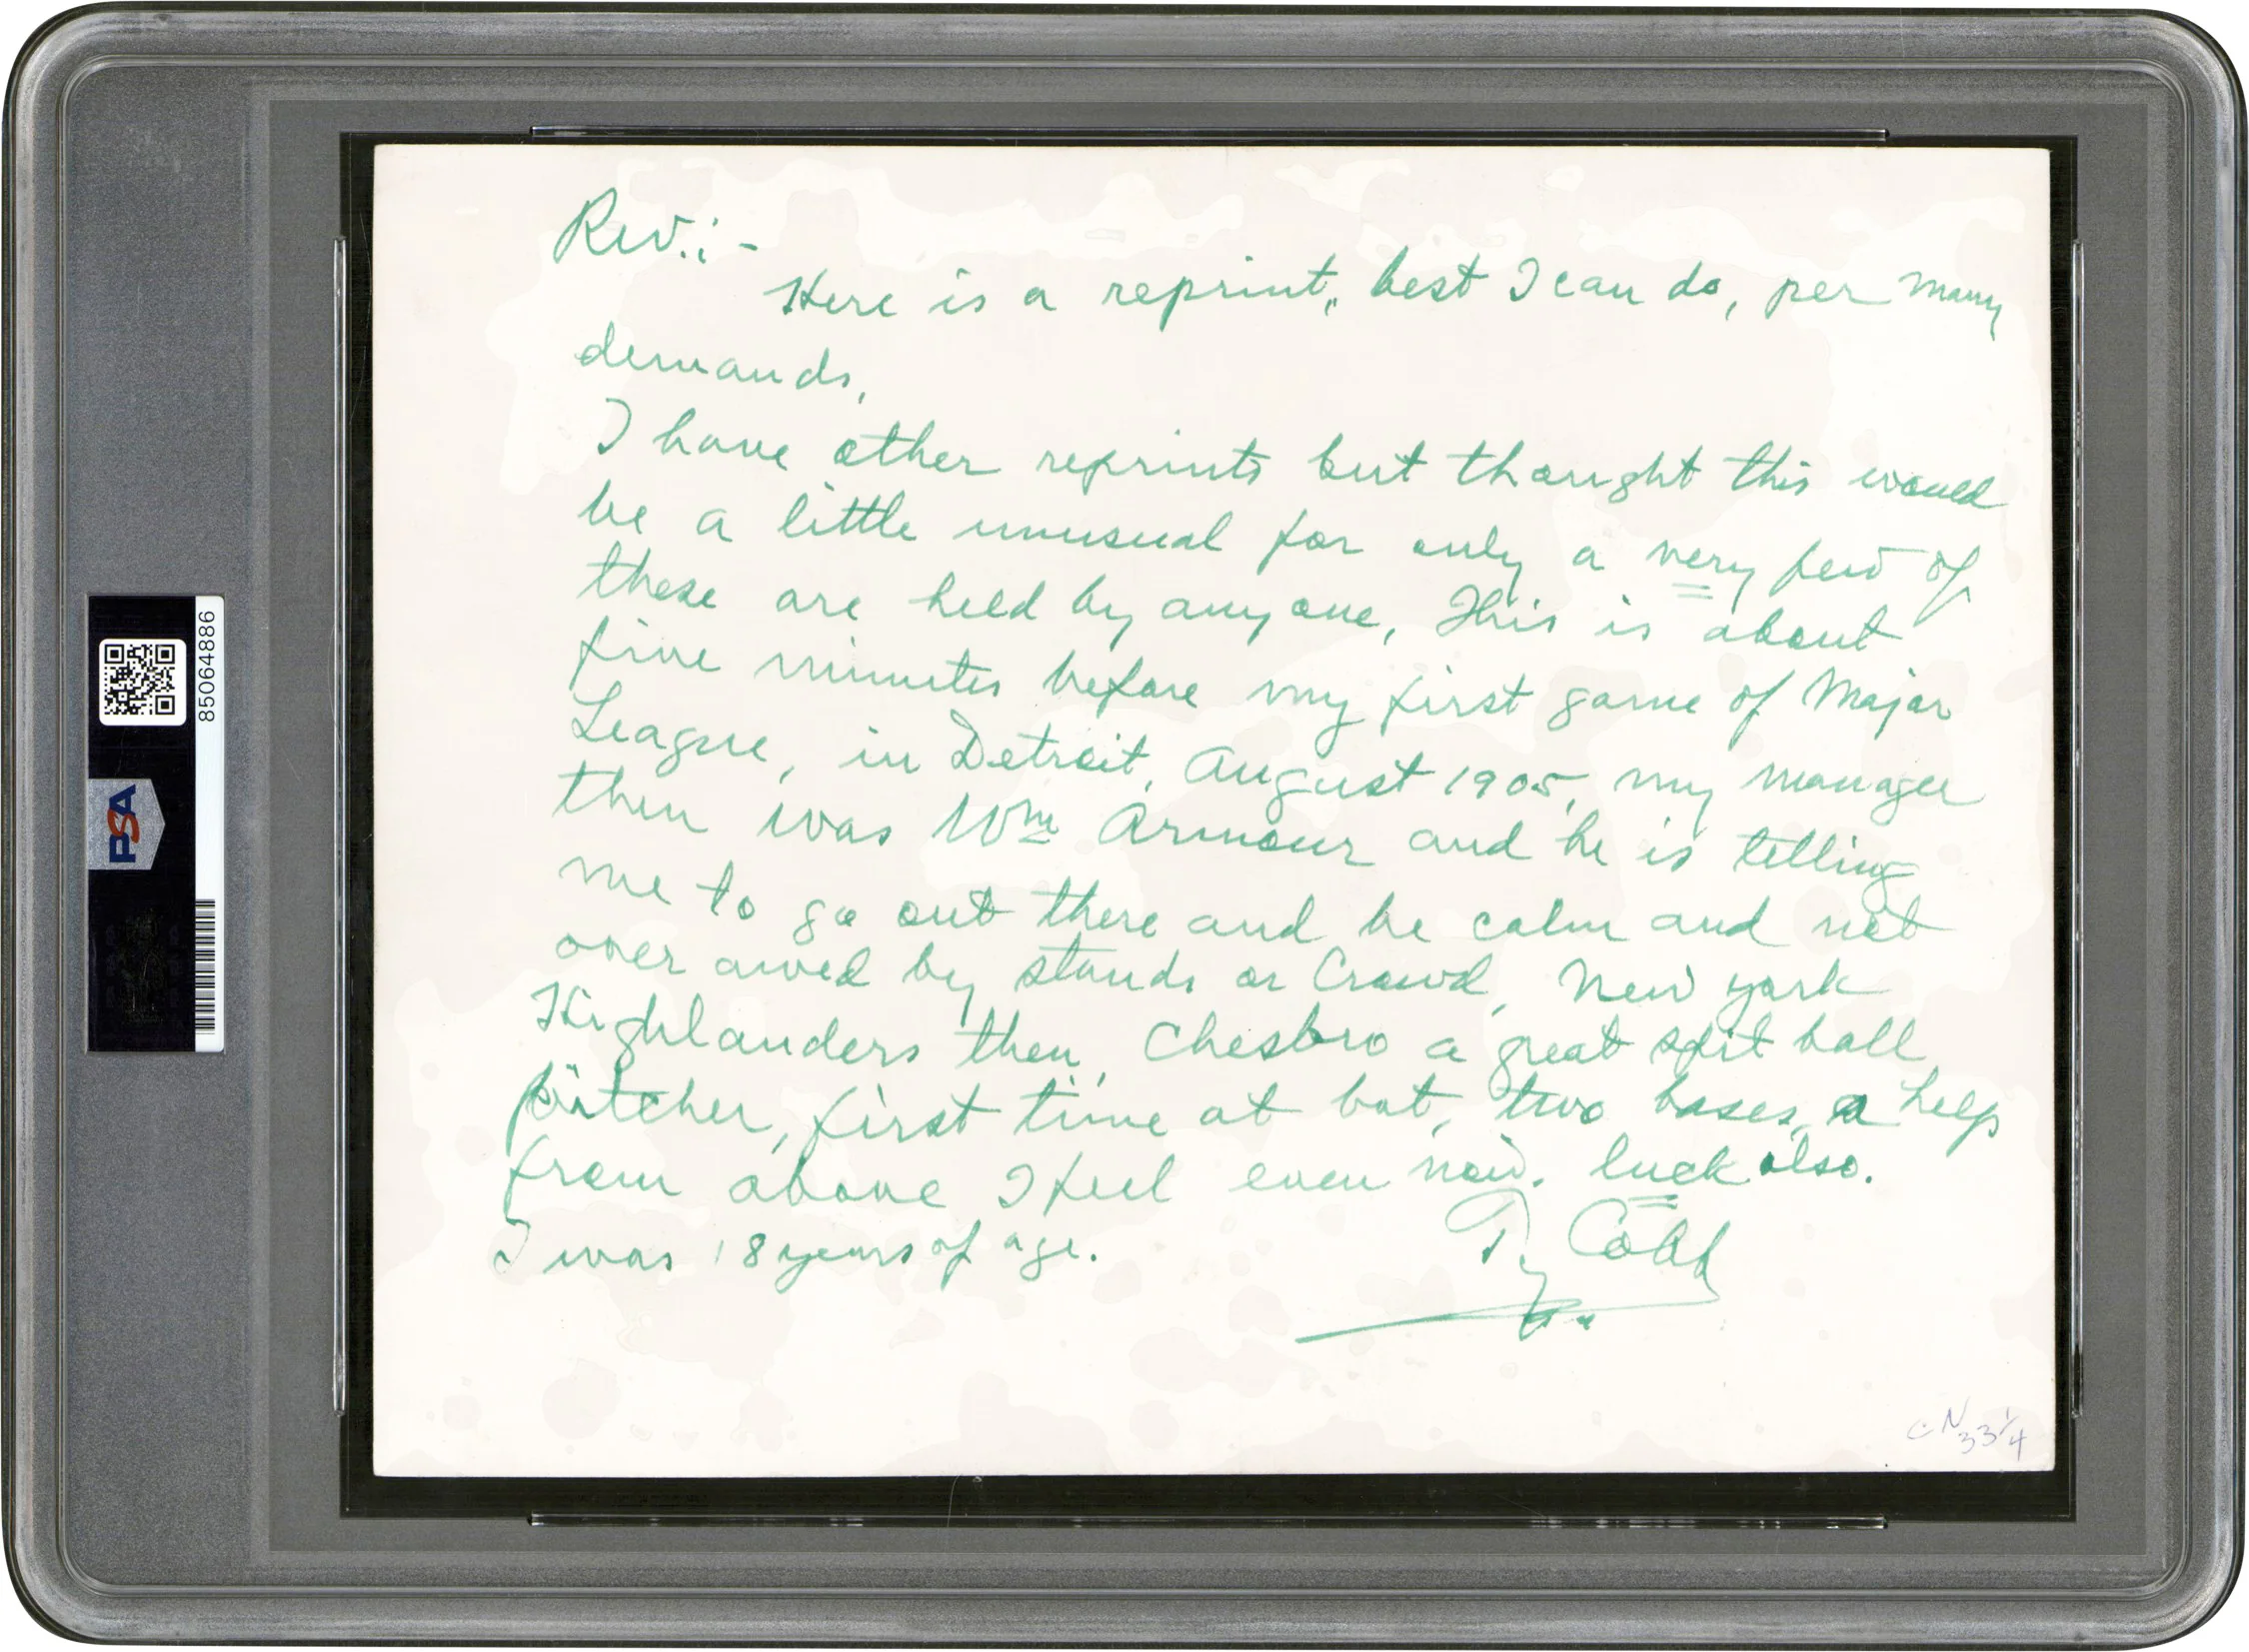 Rev.:-
Here is a reprint, best I can do, per many
demands,
I have other reprints but thought this would
be a little unusual for only a very few of
these are held by anyone, This is about
five minutes before my first game of Major
League, in Detroit, August 1905, my manager
then was Wm Armour and he is telling
me to go out there and be calm and not
over awed by stands or Crowd, New York
Highlanders then, Chesbro a great spit ball
pitcher, first time at bat, two bases, a help
from above I feel even now. luck also.
I was 18 years of age.
Ty Cobb
CN 33 1/4
85064886
PSA